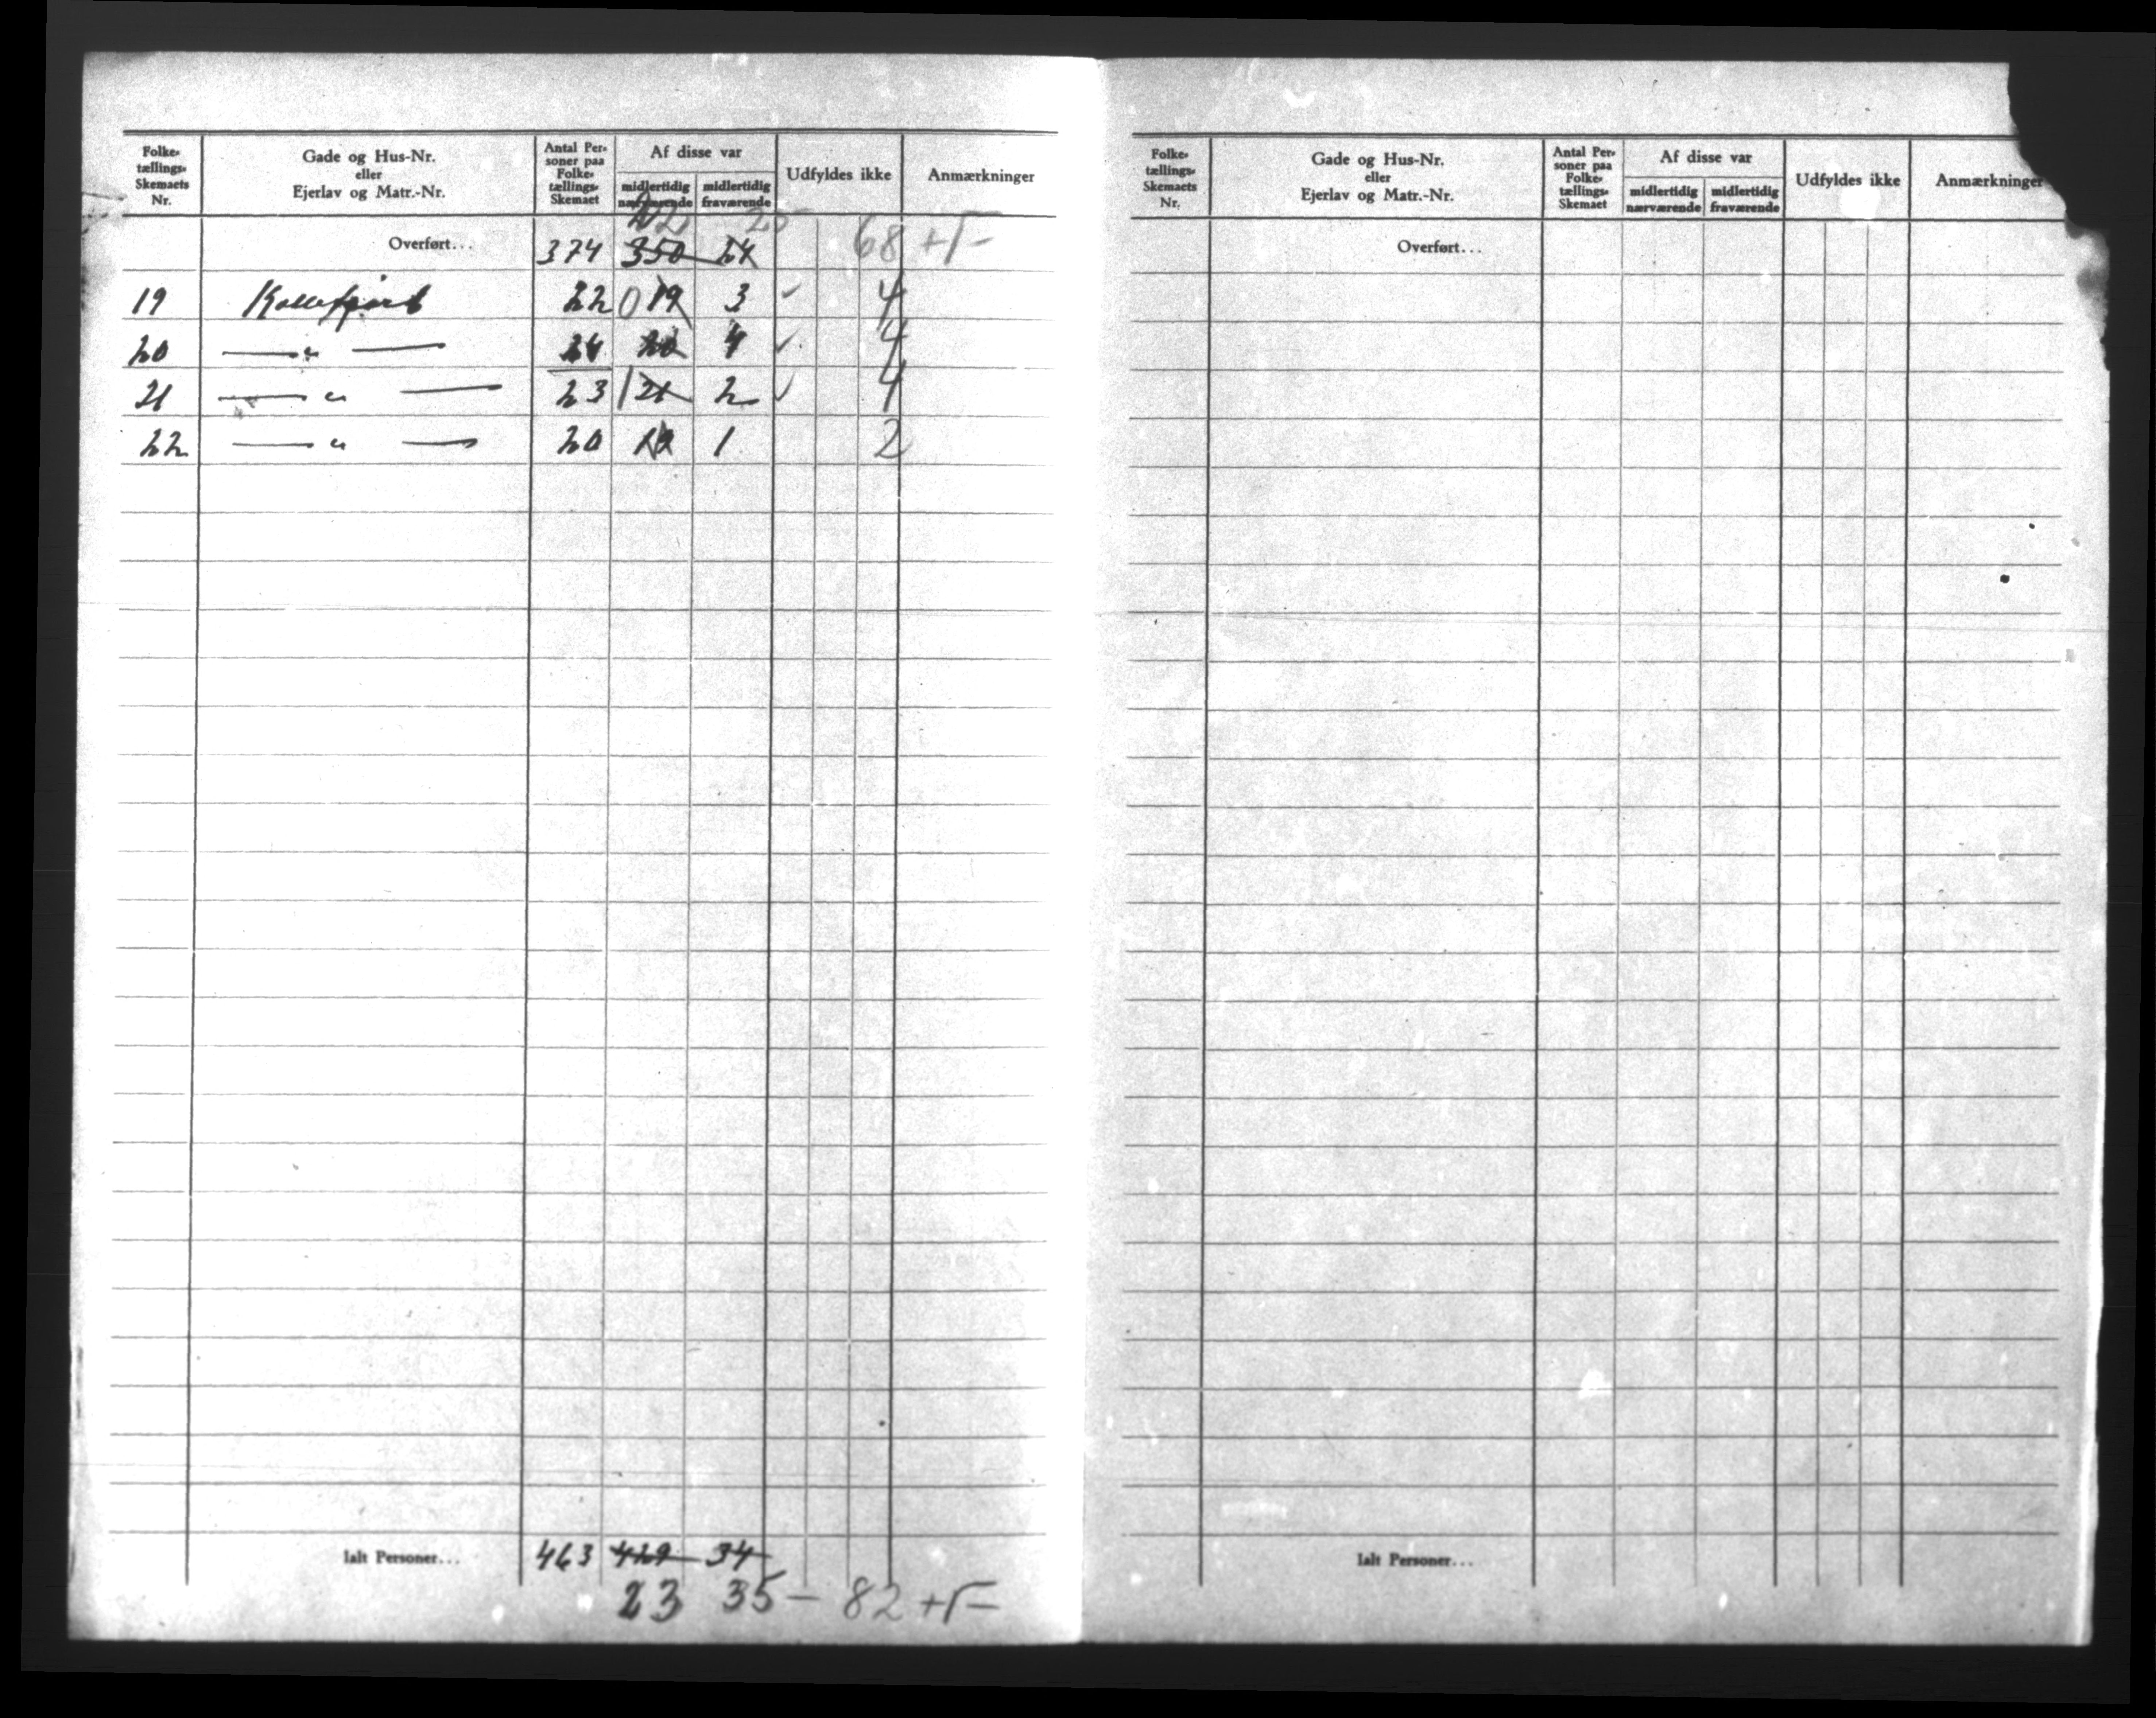 Folke-tællings-Skemaets Nr. Gade og Hus-Nr. eller Ejerlav og Matr.-Nr. Antal Personer paa Folke-tællings-Skemaet Af disse var midlertidig nærværende midlertidig fraværende Udfyldes ikke Anmærkninger
22 25
Overført... 374 350 24 68 +
19 Kollefjord 22 0 19 3 ✓ 4
20 —„— 24 20 4 ✓ 4
21 —„— 23 1 21 2 ✓ 4
22 —„— 20 19 1 2
Ialt Personer... 463 429 34
23 35 — 82 +
Folke-tællings-Skemaets Nr. Gade og Hus-Nr. eller Ejerlav og Matr.-Nr. Antal Personer paa Folke-tællings-Skemaet Af disse var midlertidig nærværende midlertidig fraværende Udfyldes ikke Anmærkninger
Overført...
Ialt Personer...